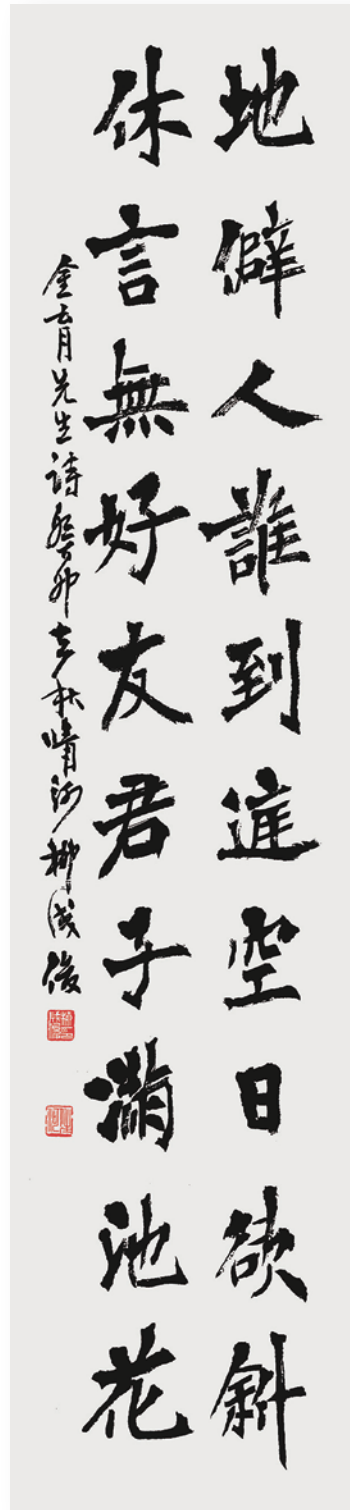 地僻人誰到庭空日欲斜
休言無好友君子滿池花
金育先生詩癸卯立秋晴河柳成俊